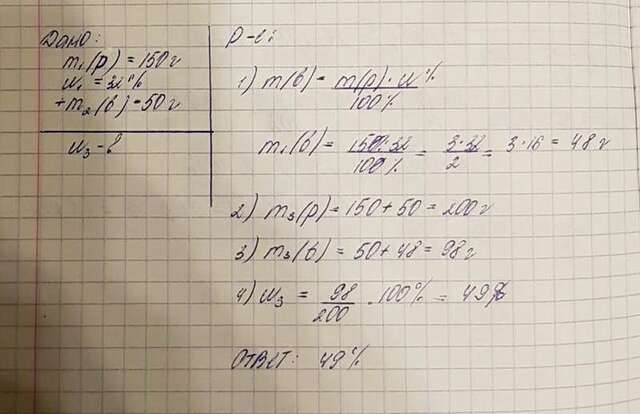 Дано:
m₁(р) = 150 г
w₁ = 32%
+m₂(в) = 50 г
w₃ - ?
Р-е:
1) m(в) = m(р)·w% / 100%
m₁(в) = 150·32 / 100% = 3·32 / 2 = 3·16 = 48 г
2) m₃(р) = 150 + 50 = 200 г
3) m₃(в) = 50 + 48 = 98 г
4) w₃ = 98 / 200 · 100% = 49%
Ответ: 49%